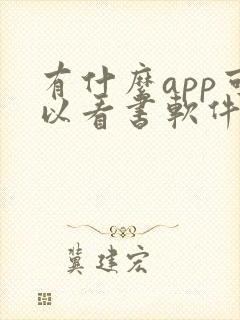 有什麼app可
以看書軟件
冀建宏